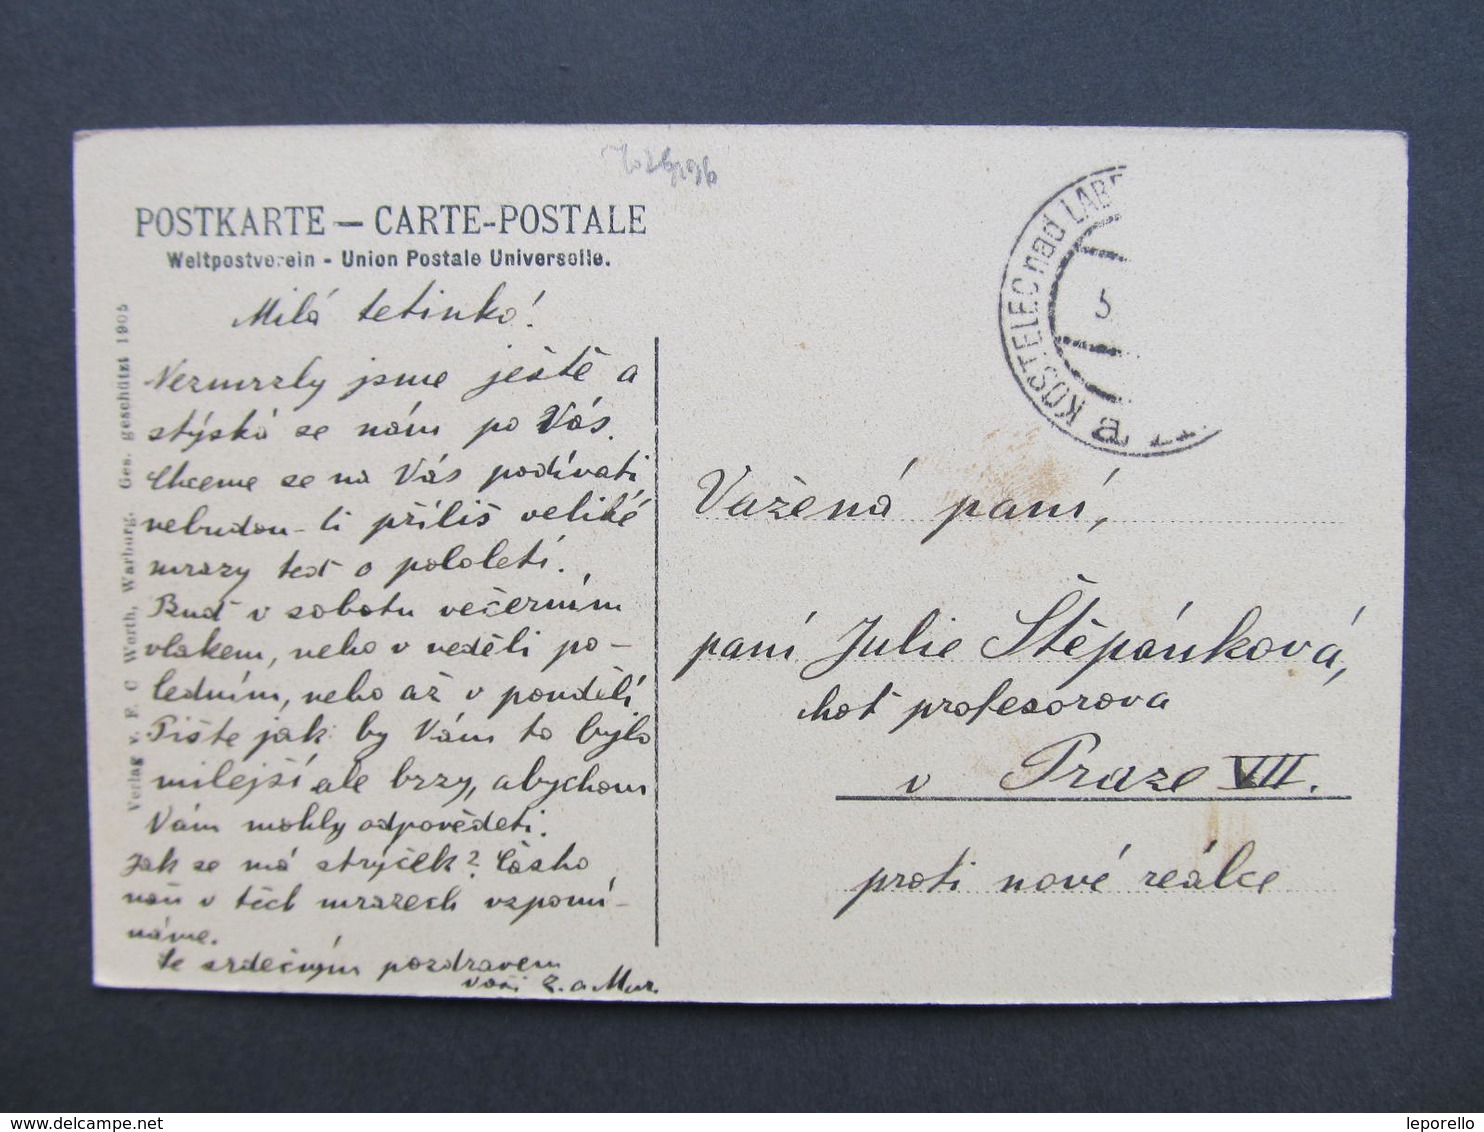 POSTKARTE — CARTE-POSTALE
Weltpostverein - Union Postale Universelle.
Verlag v. F. C Warth, Warburg. Ges. geschützt 1905
Milá tetinko!
Nezmrzly jsme ještě a
stýská se nám po Vás.
Chceme se na Vás podívati
nebudou-li příliš veliké
mrazy teď o pololetí.
Buď v sobotu večerním
vlakem, nebo v neděli po-
ledním, nebo až v pondělí.
Pište jak by Vám to bylo
milejší ale brzy, abychom
Vám mohly odpověděti.
Jak se má strýček? Často
naň v těch mrazech vzpomí-
náme.
Se srdečným pozdravem
Vaši Z. a Mar.
KOSTELEC nad LAB
5
B
Važená paní,
paní Julie Štěpánková,
choť profesorova
v Praze VII.
proti nové reálce
delcampe.net
leporello